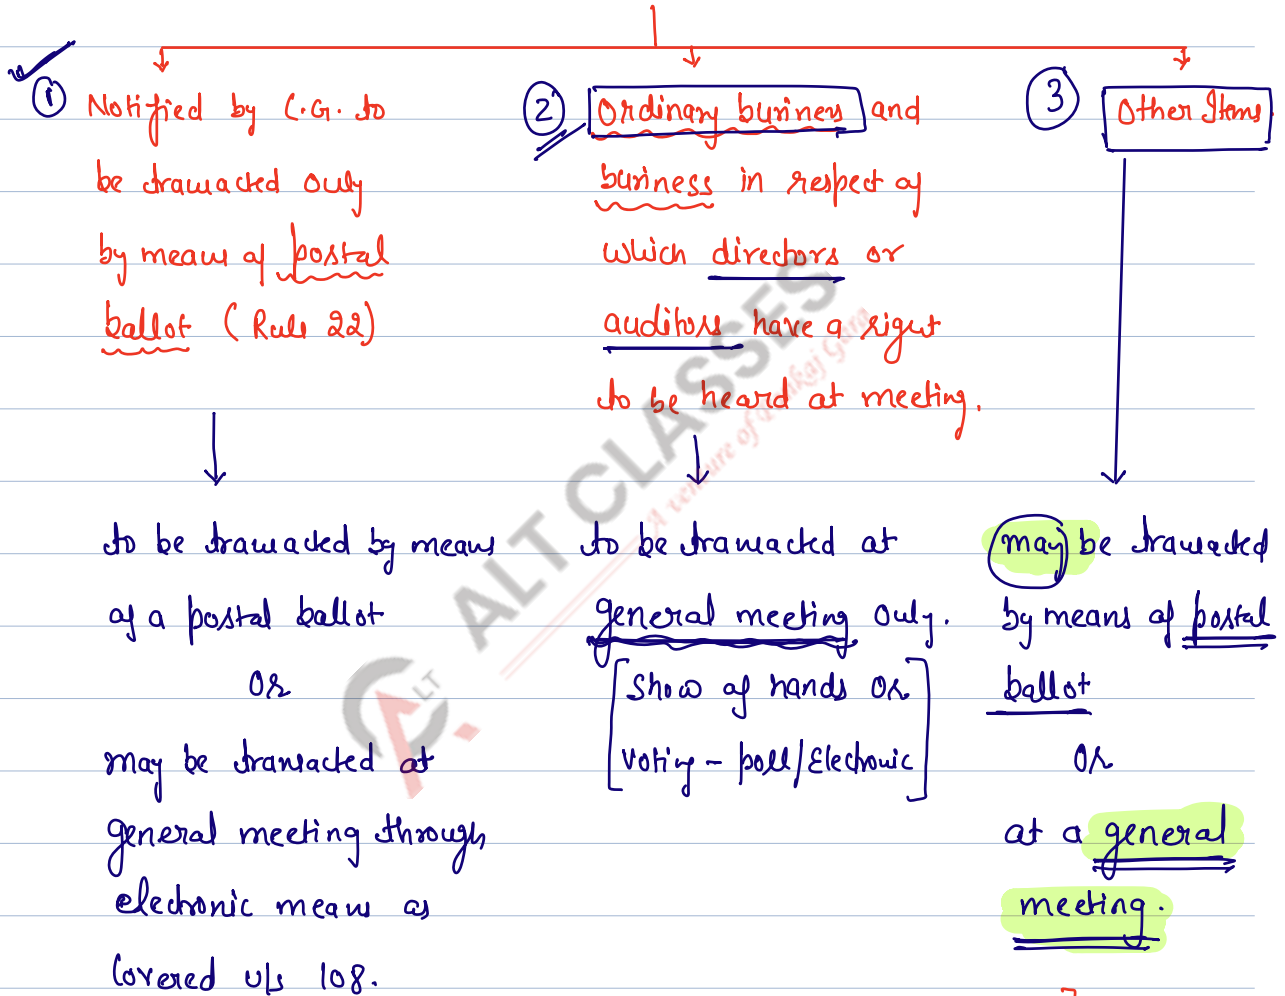 ① Notified by C.G. to
be transacted only
by means of postal
ballot (Rule 22)
to be transacted by means
of a postal ballot
OR
may be transacted at
general meeting through
electronic means as
Covered u/s 108.
② Ordinary business and
business in respect of
which directors or
auditors have a right
to be heard at meeting.
to be transacted at
general meeting only.
[Show of hands OR
Voting - poll/Electronic]
③ Other Items
may be transacted
by means of postal
ballot
OR
at a general
meeting.
ALT CLASSES
A venture of Pankaj Garg
ALT